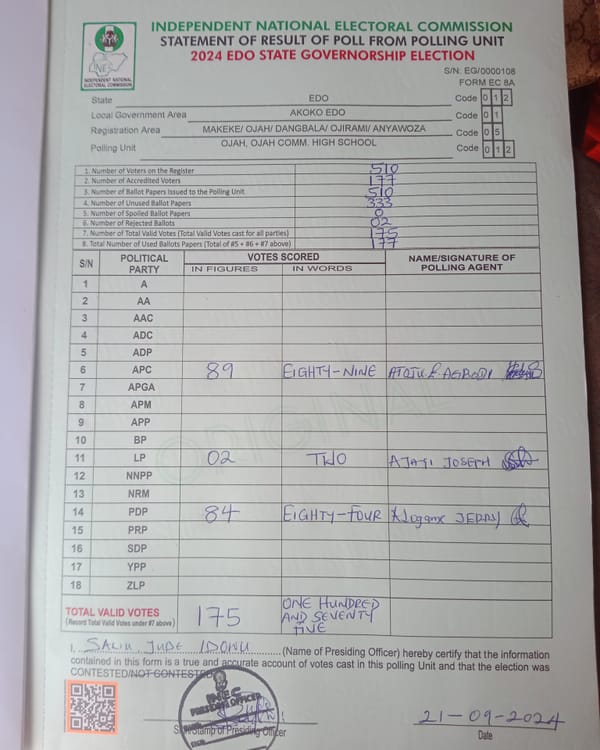 INDEPENDENT NATIONAL ELECTORAL COMMISSION
STATEMENT OF RESULT OF POLL FROM POLLING UNIT
2024 EDO STATE GOVERNORSHIP ELECTION
INDEPENDENT NATIONAL
ELECTORAL COMMISSION
S/N: EG/0000108
FORM EC 8A
State EDO Code 0 1 2
Local Government Area AKOKO EDO Code 0 1
Registration Area MAKEKE/ OJAH/ DANGBALA/ OJIRAMI/ ANYAWOZA Code 0 5
Polling Unit OJAH, OJAH COMM. HIGH SCHOOL Code 0 1 2
1. Number of Voters on the Register 510
2. Number of Accredited Voters 177
3. Number of Ballot Papers Issued to the Polling Unit 510
4. Number of Unused Ballot Papers 333
5. Number of Spoiled Ballot Papers 0
6. Number of Rejected Ballots 02
7. Number of Total Valid Votes (Total Valid Votes cast for all parties) 175
8. Total Number of Used Ballots Papers (Total of #5 + #6 + #7 above) 177
S/N POLITICAL PARTY VOTES SCORED NAME/SIGNATURE OF POLLING AGENT
IN FIGURES IN WORDS
1 A
2 AA
3 AAC
4 ADC
5 ADP
6 APC 89 EIGHTY-NINE
7 APGA
8 APM
9 APP
10 BP
11 LP 02 TWO AJAYI JOSEPH
12 NNPP
13 NRM
14 PDP 84 EIGHTY-FOUR
15 PRP
16 SDP
17 YPP
18 ZLP
ORIGINAL
TOTAL VALID VOTES 175 ONE HUNDRED
(Record Total Valid Votes under #7 above) AND SEVENTY
FIVE
I, SALIU JUDE IDONU (Name of Presiding Officer) hereby certify that the information
contained in this form is a true and accurate account of votes cast in this polling Unit and that the election was
CONTESTED/NOT CONTESTED
INEC
PRESIDING OFFICER
Sign/Stamp of Presiding Officer
21-09-2024
Date